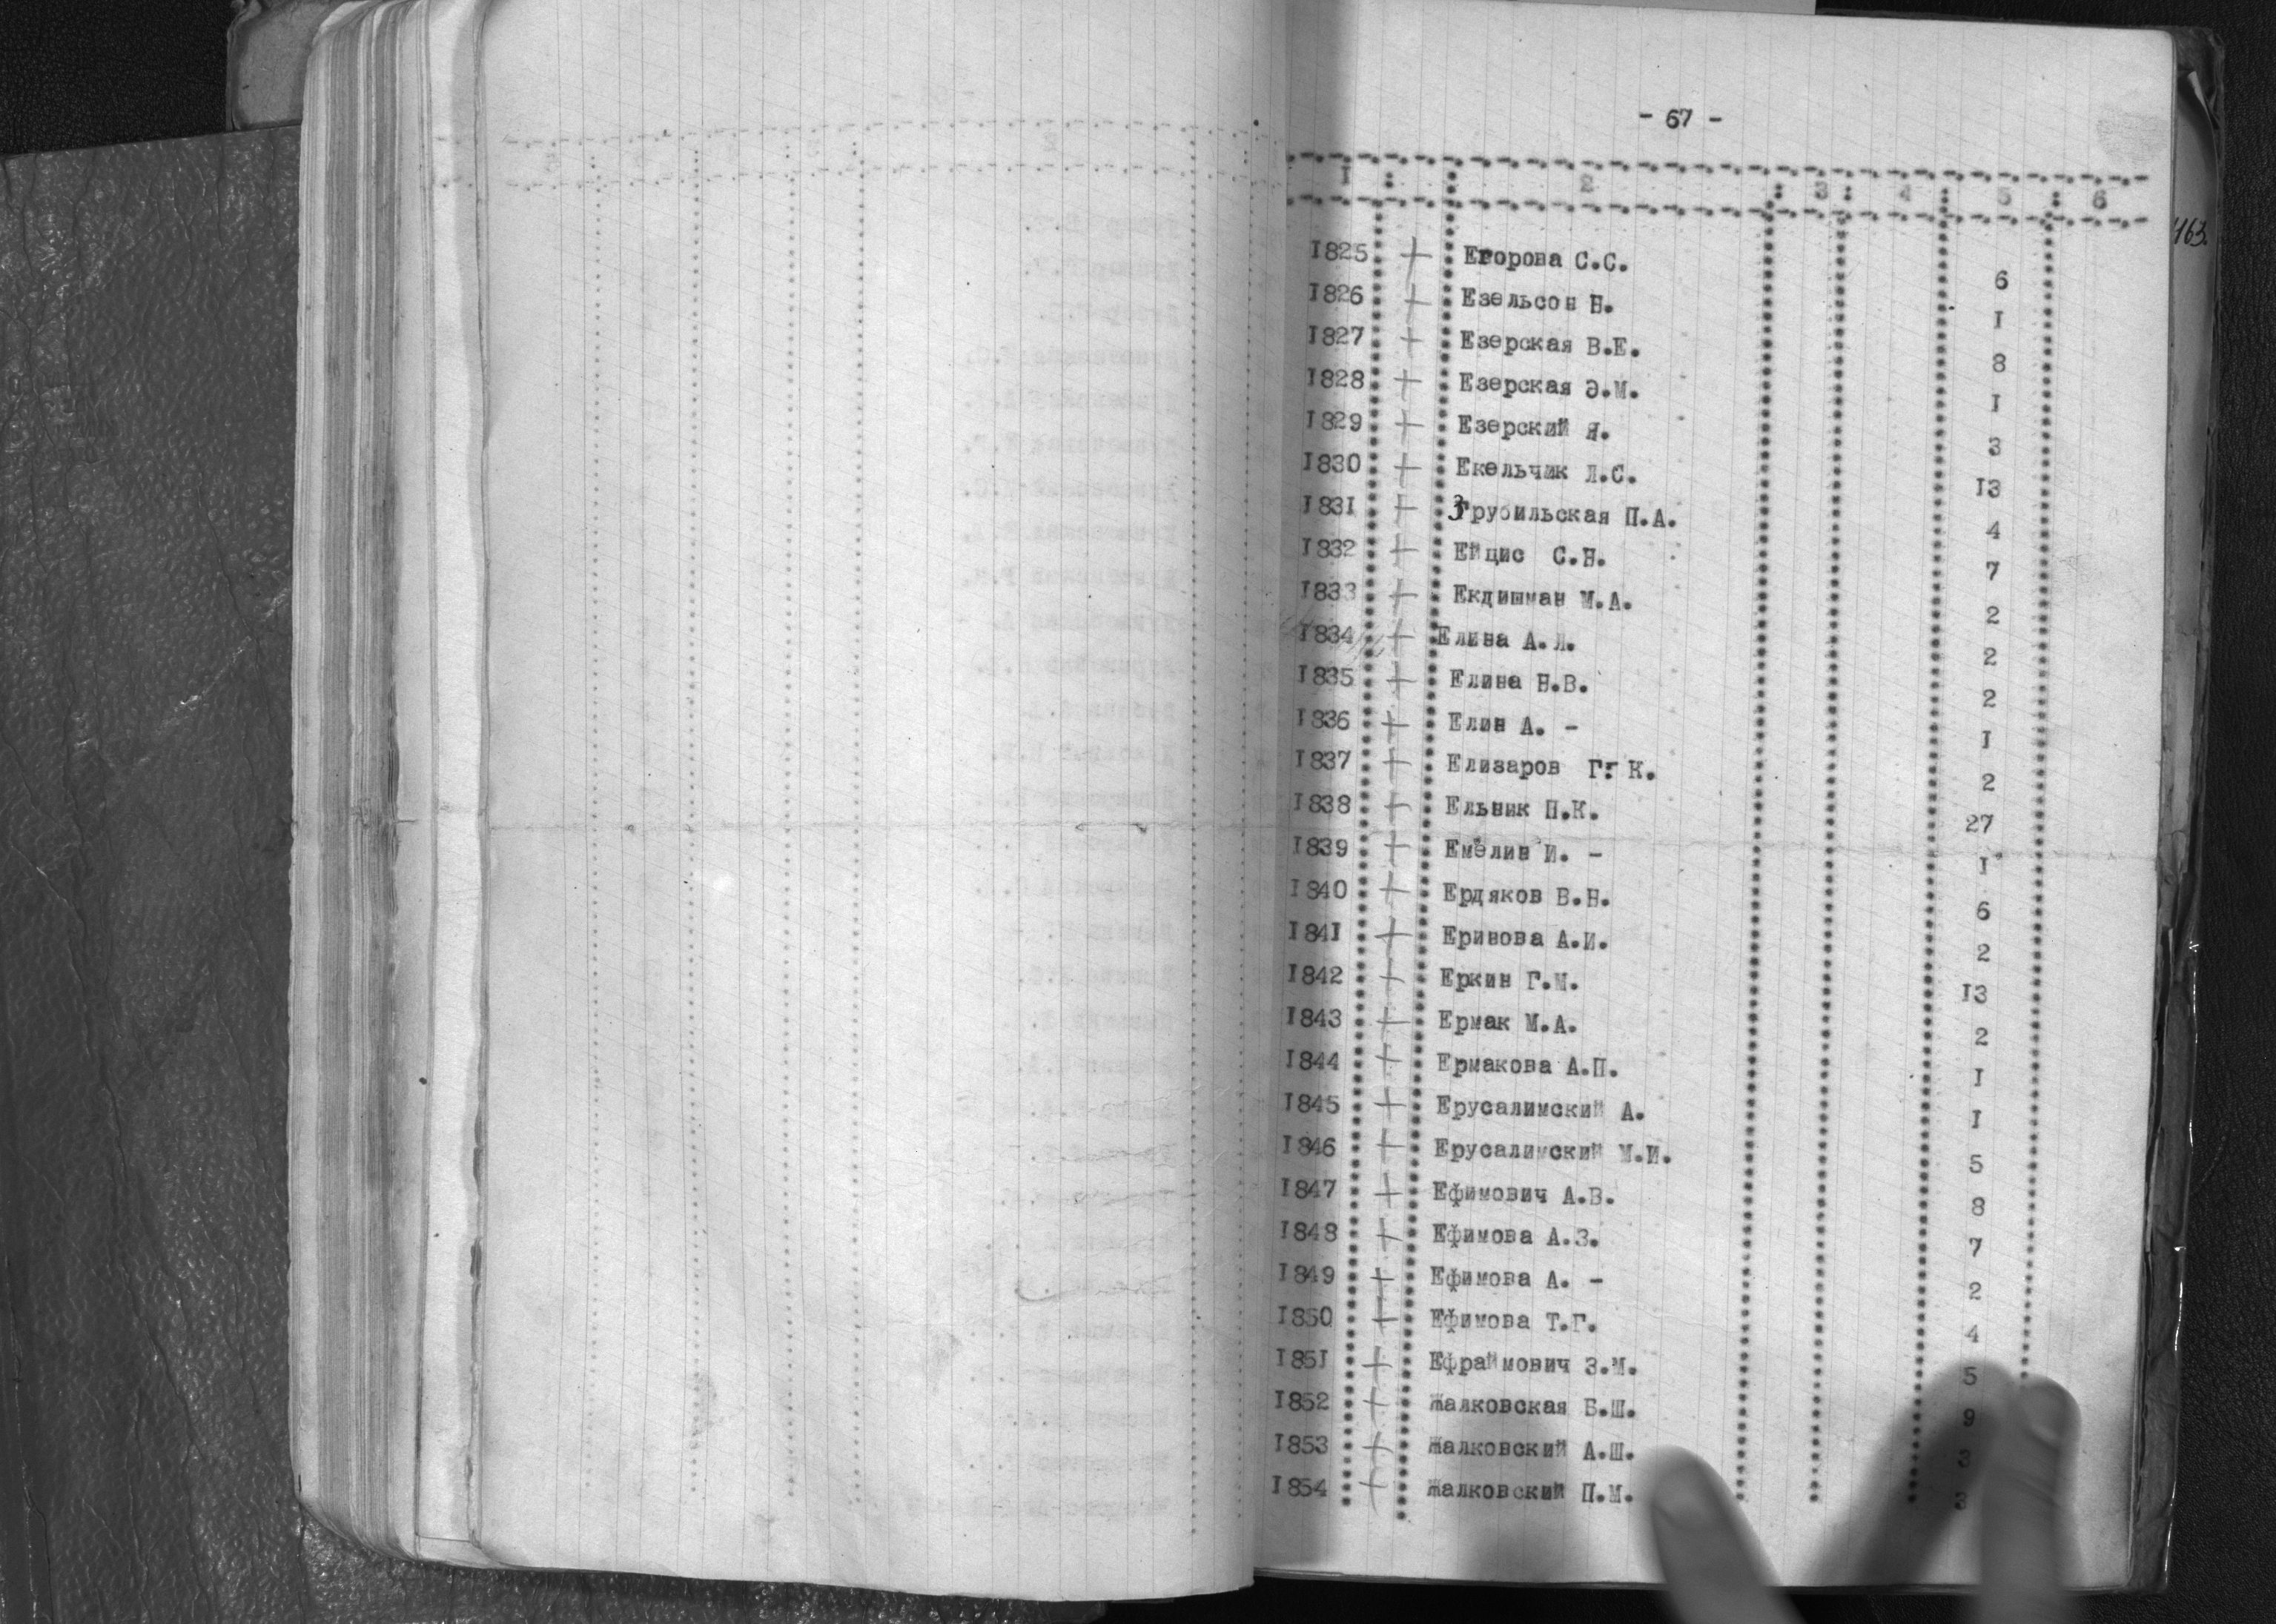 - 67 -
1 2 3 4 5 6
463.
1825 + Егорова С.С. 6
1826 + Езельсон Н. 1
1827 + Езерская В.Е. 8
1828 + Езерская Э.М. 1
1829 + Езерский Я. 3
1830 + Екельчик Л.С. 13
1831 + Згрубильская П.А. 4
1832 + Ейцис С.Н. 7
1833 + Екдишман М.А. 2
1834 + Елина А.Л. 2
1835 + Елина Н.В. 2
1836 + Елин А. - 1
1837 + Елизаров Г. К. 2
1838 + Ельник П.К. 27
1839 + Емелин И. - 1
1840 + Ердяков В.Н. 6
1841 + Еринова А.И. 2
1842 + Еркин Г.М. 13
1843 + Ермак М.А. 2
1844 + Ермакова А.П. 1
1845 + Ерусалимский А. 1
1846 + Ерусалимский М.И. 5
1847 + Ефимович А.В. 8
1848 + Ефимова А.З. 7
1849 + Ефимова А. - 2
1850 + Ефимова Т.Г. 4
1851 + Ефраймович З.М. 5
1852 + Жалковская Б.Ш. 9
1853 + Жалковский А.Ш. 3
1854 + Жалковский П.М. 3